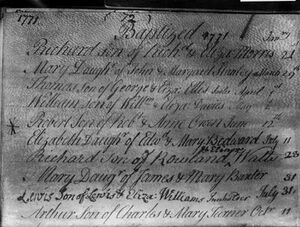 1771
Baptized 1771
Richard Son of Rich.d & Eliz.a Morris Jan.y 22
Mary Daugh.r of John & Margaret March 29
Thomas Son of George & Eliz.a Ellis April
William Son of Will.m & Eliz.a
Robert Son of Rob.t & Anne Owen June 12
Elizabeth Daugh.r of Edw.d & Mary July 11
Richard Son of Rowland Watts 23
Mary Daug.r of James & Mary Baxter 31
Lewis Son of Lewis & Eliza: Williams July 31
Arthur Son of Charles & Mary Turner Oct.r 11